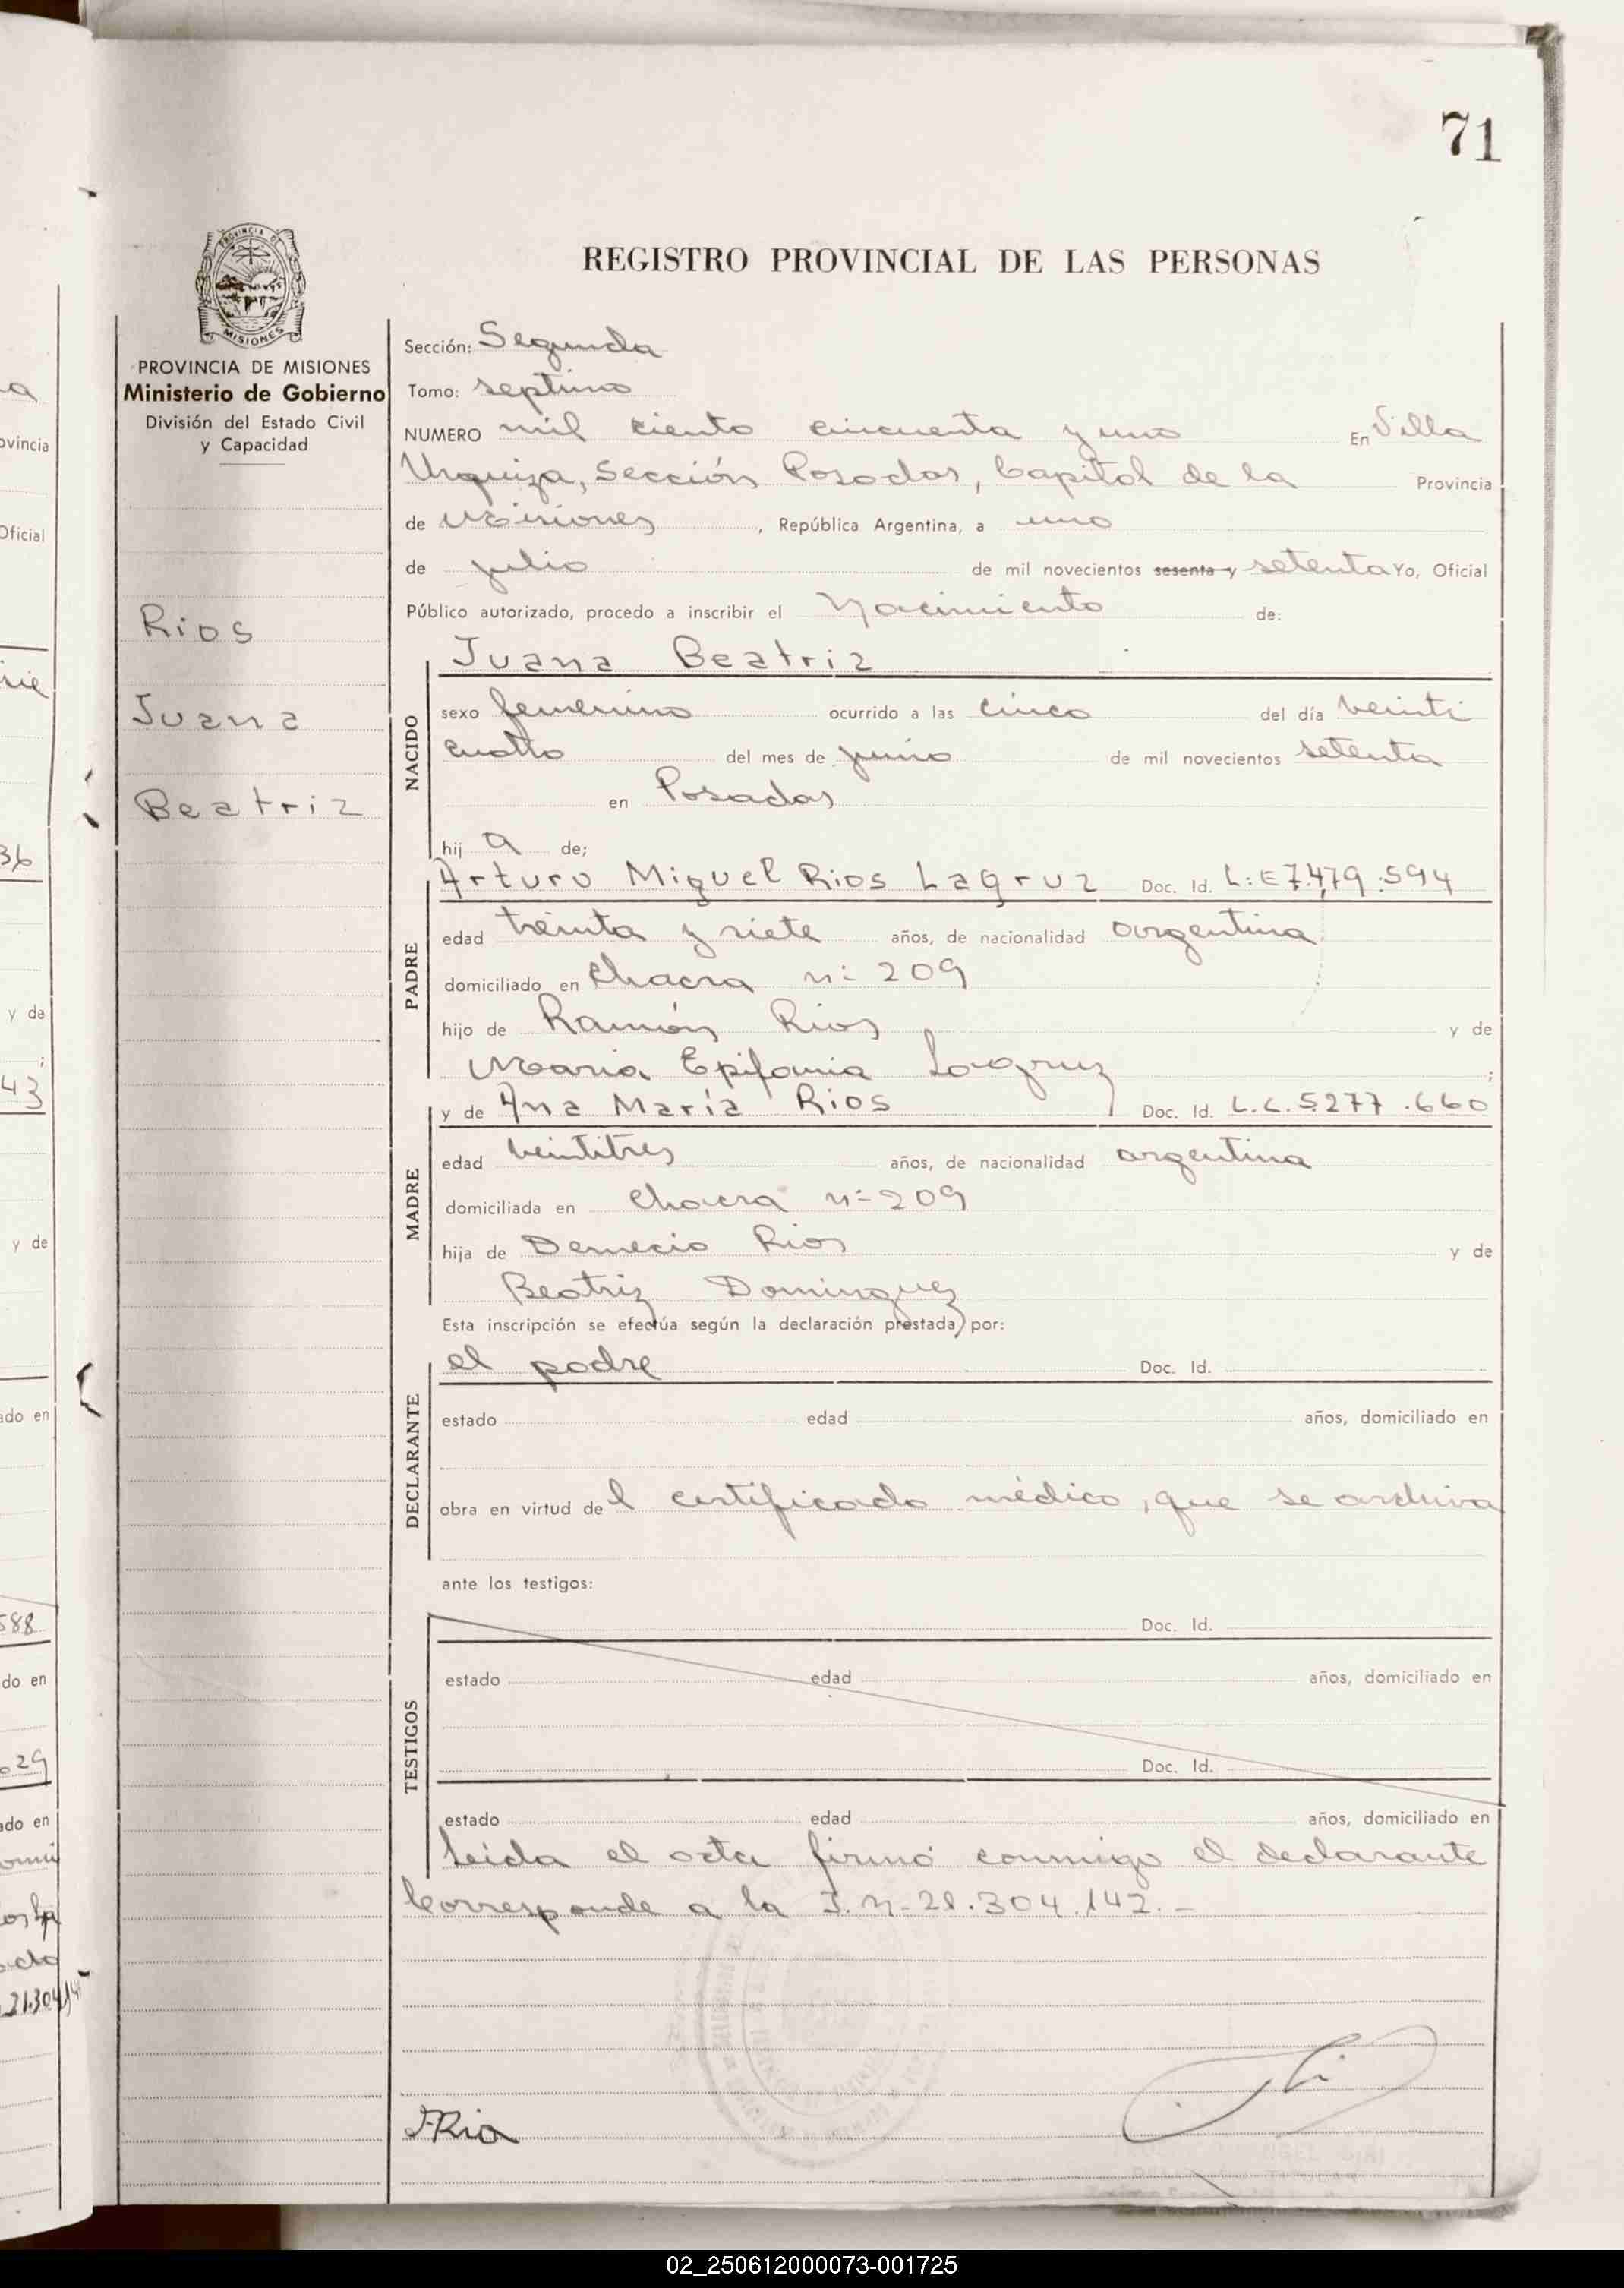 71
PROVINCIA DE MISIONES
REGISTRO PROVINCIAL DE LAS PERSONAS
PROVINCIA DE MISIONES
Ministerio de Gobierno
División del Estado Civil
y Capacidad
Rios
Juana
Beatriz
Sección: Segunda
Tomo: septimo
NUMERO mil ciento cincuenta y uno En Villa
Urquiza, Sección Posadas, Capital de la Provincia
de Misiones, República Argentina, a uno
de julio de mil novecientos sesenta y setenta Yo, Oficial
Público autorizado, procedo a inscribir el Nacimiento de:
NACIDO
Juana Beatriz
sexo femenino ocurrido a las cinco del día veinti
cuatro del mes de junio de mil novecientos setenta
en Posadas
hij a de;
PADRE
Arturo Miguel Rios Lagruz Doc. Id. L:E 7.479.594
edad treinta y siete años, de nacionalidad argentina
domiciliado en Chacra n: 209
hijo de Ramón Rios y de
Maria Epifania Lagruz ;
MADRE
y de Ana María Rios Doc. Id. L.C.5277.660
edad veintitres años, de nacionalidad argentina
domiciliada en Chacra n: 209
hija de Demecio Rios y de
Beatriz Dominguez
Esta inscripción se efectúa según la declaración prestada por:
DECLARANTE
el padre Doc. Id.
estado edad años, domiciliado en
obra en virtud de l certificado médico, que se archiva
ante los testigos:
TESTIGOS
Doc. Id.
estado edad años, domiciliado en
Doc. Id.
estado edad años, domiciliado en
Leida el acta firmó conmigo el declarante
Corresponde a la I.N-21.304.142.-
02_250612000073-001725